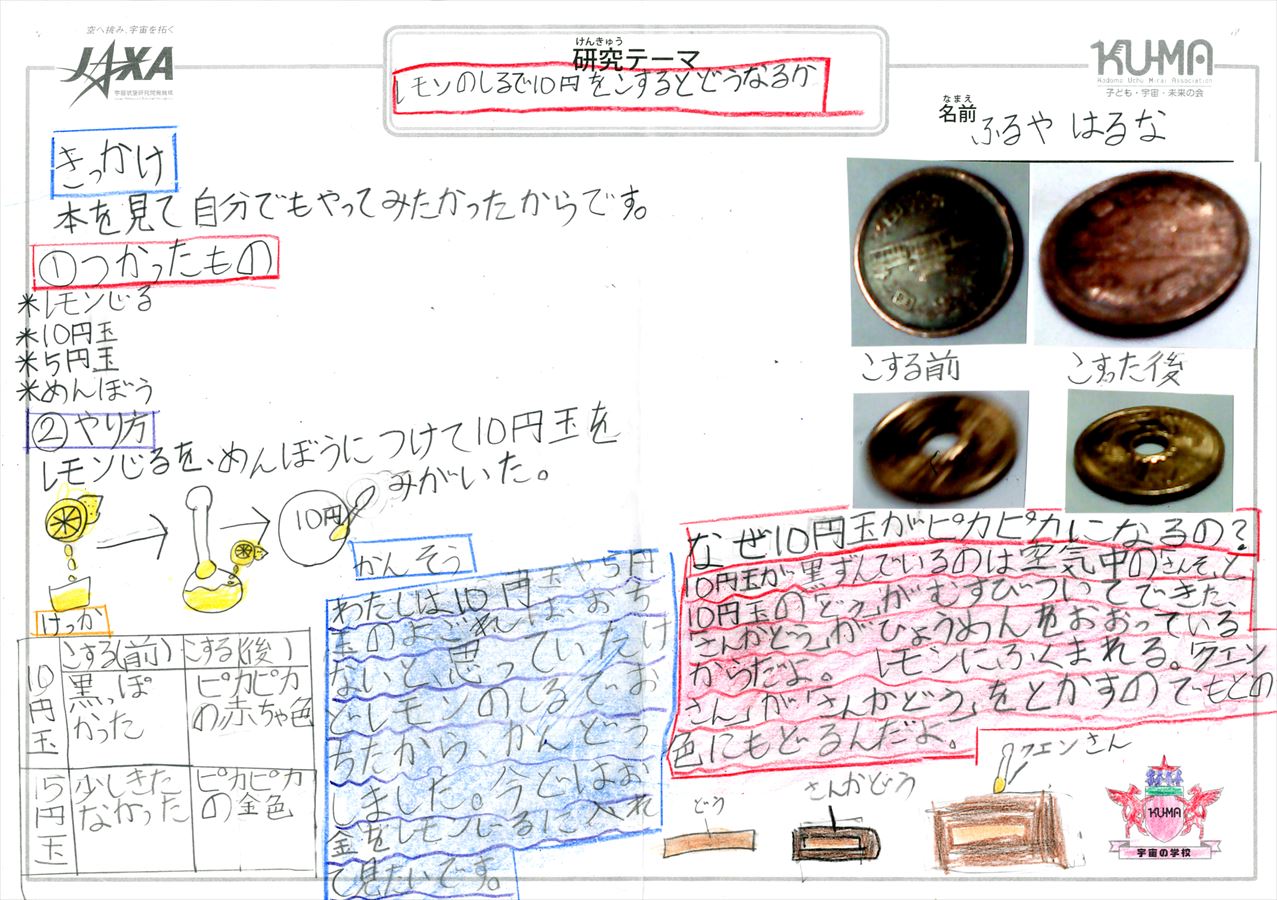 空へ挑み、宇宙を拓く
JAXA
宇宙航空研究開発機構
けんきゅう
研究テーマ
レモンのしるで10円をこするとどうなるか
KUMA
Kodomo Uchu Mirai Association
子ども・宇宙・未来の会
なまえ
名前
ふるや はるな
きっかけ
本を見て自分でもやってみたかったからです。
①つかったもの
*レモンじる
*10円玉
*5円玉
*めんぼう
②やり方
レモンじるを、めんぼうにつけて10円玉を
みがいた。
10円
こする前
こすった後
けっか
こする(前)
こする(後)
10円玉
黒っぽ
かった
ピカピカ
の赤ちゃ色
5円玉
少しきた
なかった
ピカピカ
の金色
かんそう
わたしは10円玉や5円
玉のよごれは、おち
ないと、思っていたけ
どレモンのしるでお
ちたから、かんどう
しました。今どはお
金をレモンじるに入れ
て見たいです。
なぜ10円玉がピカピカになるの?
10円玉が黒ずんでいるのは空気中のさんそと
10円玉の「どう」がむすびついてできた、
「さんかどう」がひょうめんをおおっている
からだよ。 レモンにふくまれる。「クエン
さん」が「さんかどう」をとかすのでもとの
色にもどるんだよ。
どう
さんかどう
クエンさん
KUMA
宇宙の学校